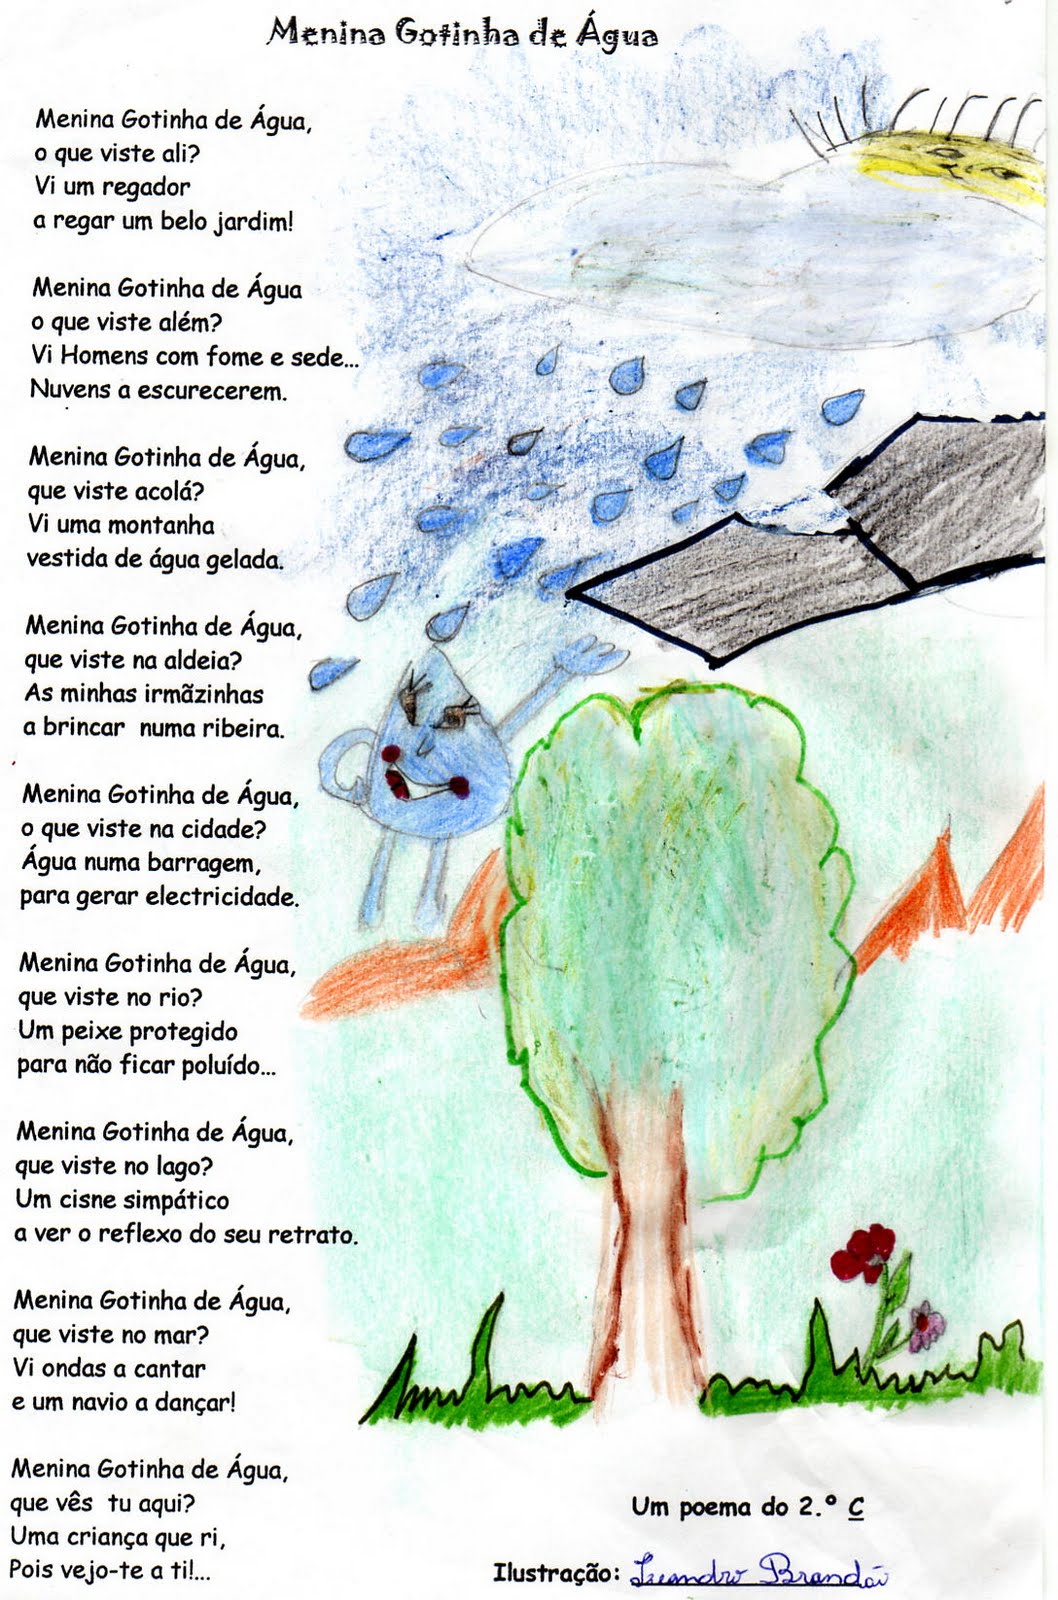 Menina Gotinha de Água
Menina Gotinha de Água,
o que viste ali?
Vi um regador
a regar um belo jardim!
Menina Gotinha de Água
o que viste além?
Vi Homens com fome e sede...
Nuvens a escurecerem.
Menina Gotinha de Água,
que viste acolá?
Vi uma montanha
vestida de água gelada.
Menina Gotinha de Água,
que viste na aldeia?
As minhas irmãzinhas
a brincar numa ribeira.
Menina Gotinha de Água,
o que viste na cidade?
Água numa barragem,
para gerar electricidade.
Menina Gotinha de Água,
que viste no rio?
Um peixe protegido
para não ficar poluído...
Menina Gotinha de Água,
que viste no lago?
Um cisne simpático
a ver o reflexo do seu retrato.
Menina Gotinha de Água,
que viste no mar?
Vi ondas a cantar
e um navio a dançar!
Menina Gotinha de Água,
que vês tu aqui?
Uma criança que ri,
Pois vejo-te a ti!...
Um poema do 2.º C
Ilustração: Leandro Brandão